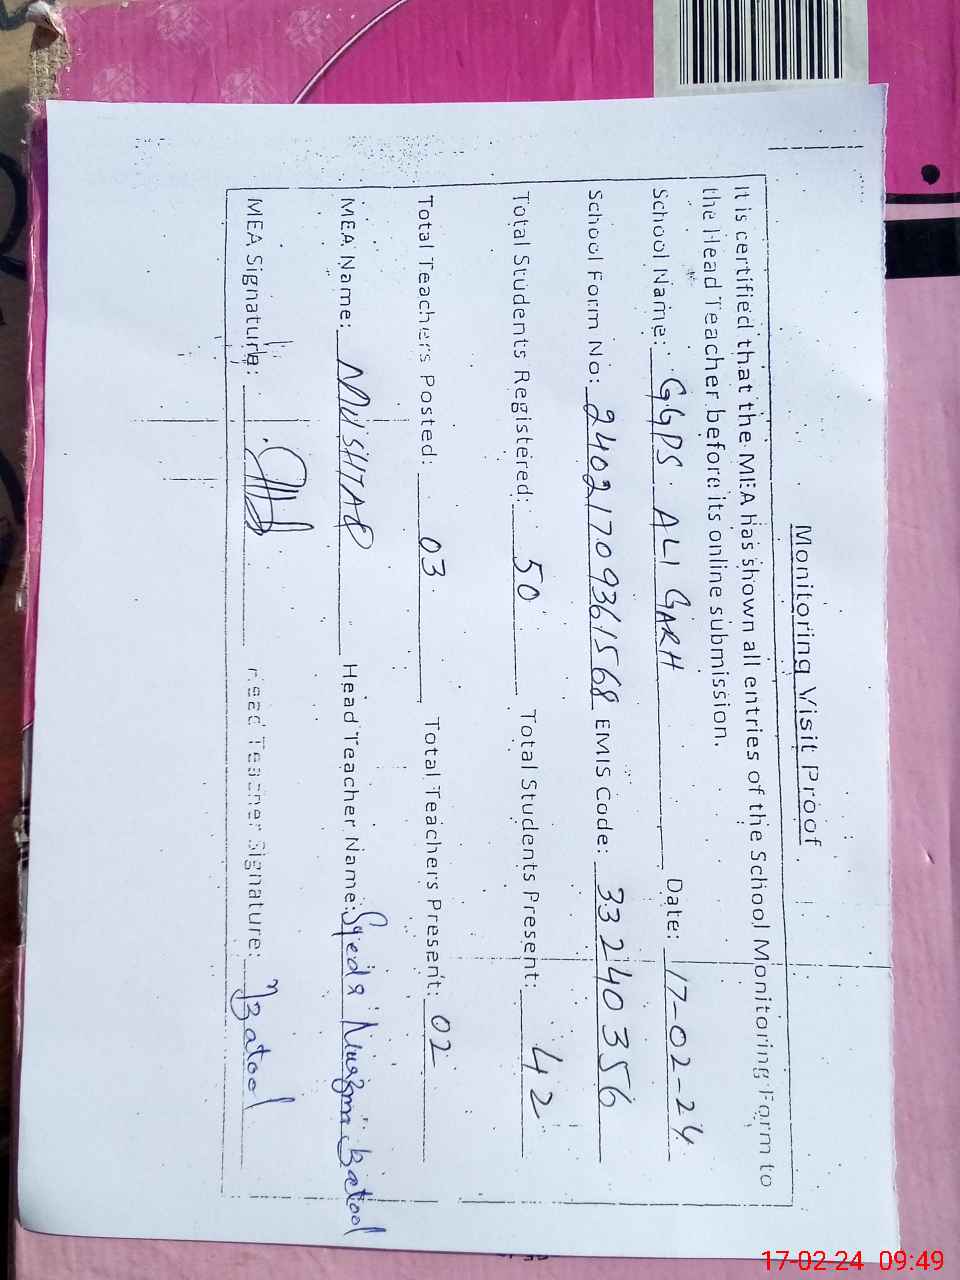 Monitoring Visit Proof
It is certified that the MEA has shown all entries of the School Monitoring Form to
the Head Teacher before its online submission.
School Name: GGPS ALI GARH Date: 17-02-24
School Form No: 24021709361568 EMIS Code: 33240356
Total Students Registered: 50 Total Students Present: 42
Total Teachers Posted: 03 Total Teachers Present: 02
MEA Name: MUSHTAQ Head Teacher Name: Syeda Batool
MEA Signature: Head Teacher Signature: Batool
17-02-24 09:49